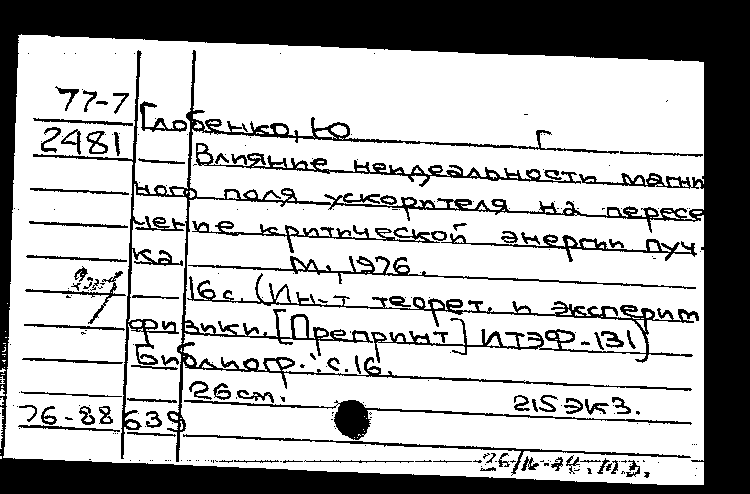 77-7
2481
Глобенко, Ю Г
Влияние неидеальности магнит
ного поля ускорителя на пересе
чение критической энергии пуч-
ка. М., 1976.
16 с. (Ин-т теорет. и эксперим
физики. [Препринт] ИТЭФ-131)
Библиогр.: с. 16.
26 см. 215 экз.
76-88 639